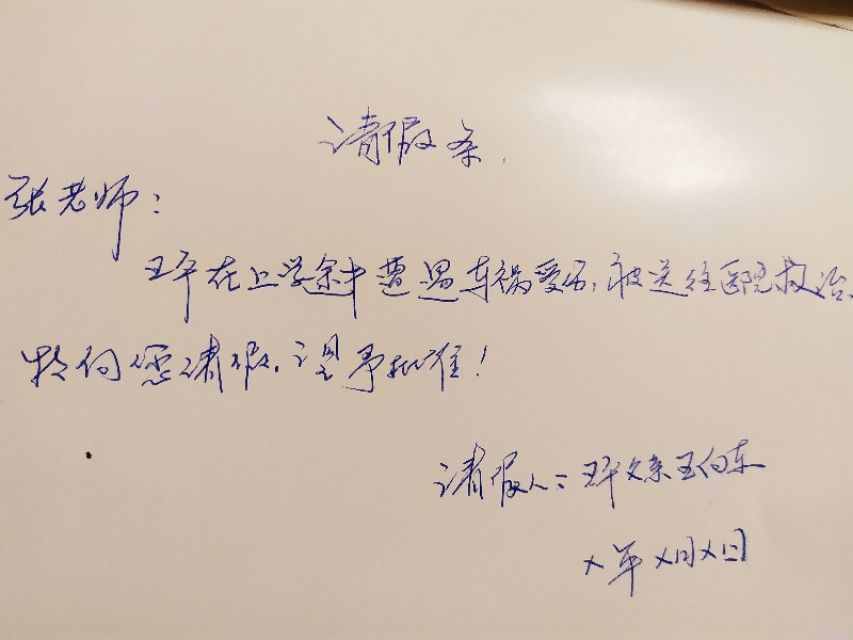 请假条
张老师:
王平在上学途中遭遇车祸受伤,被送往医院救治。
特向您请假,望予批准!
请假人:王平父亲王向东
×年×月×日